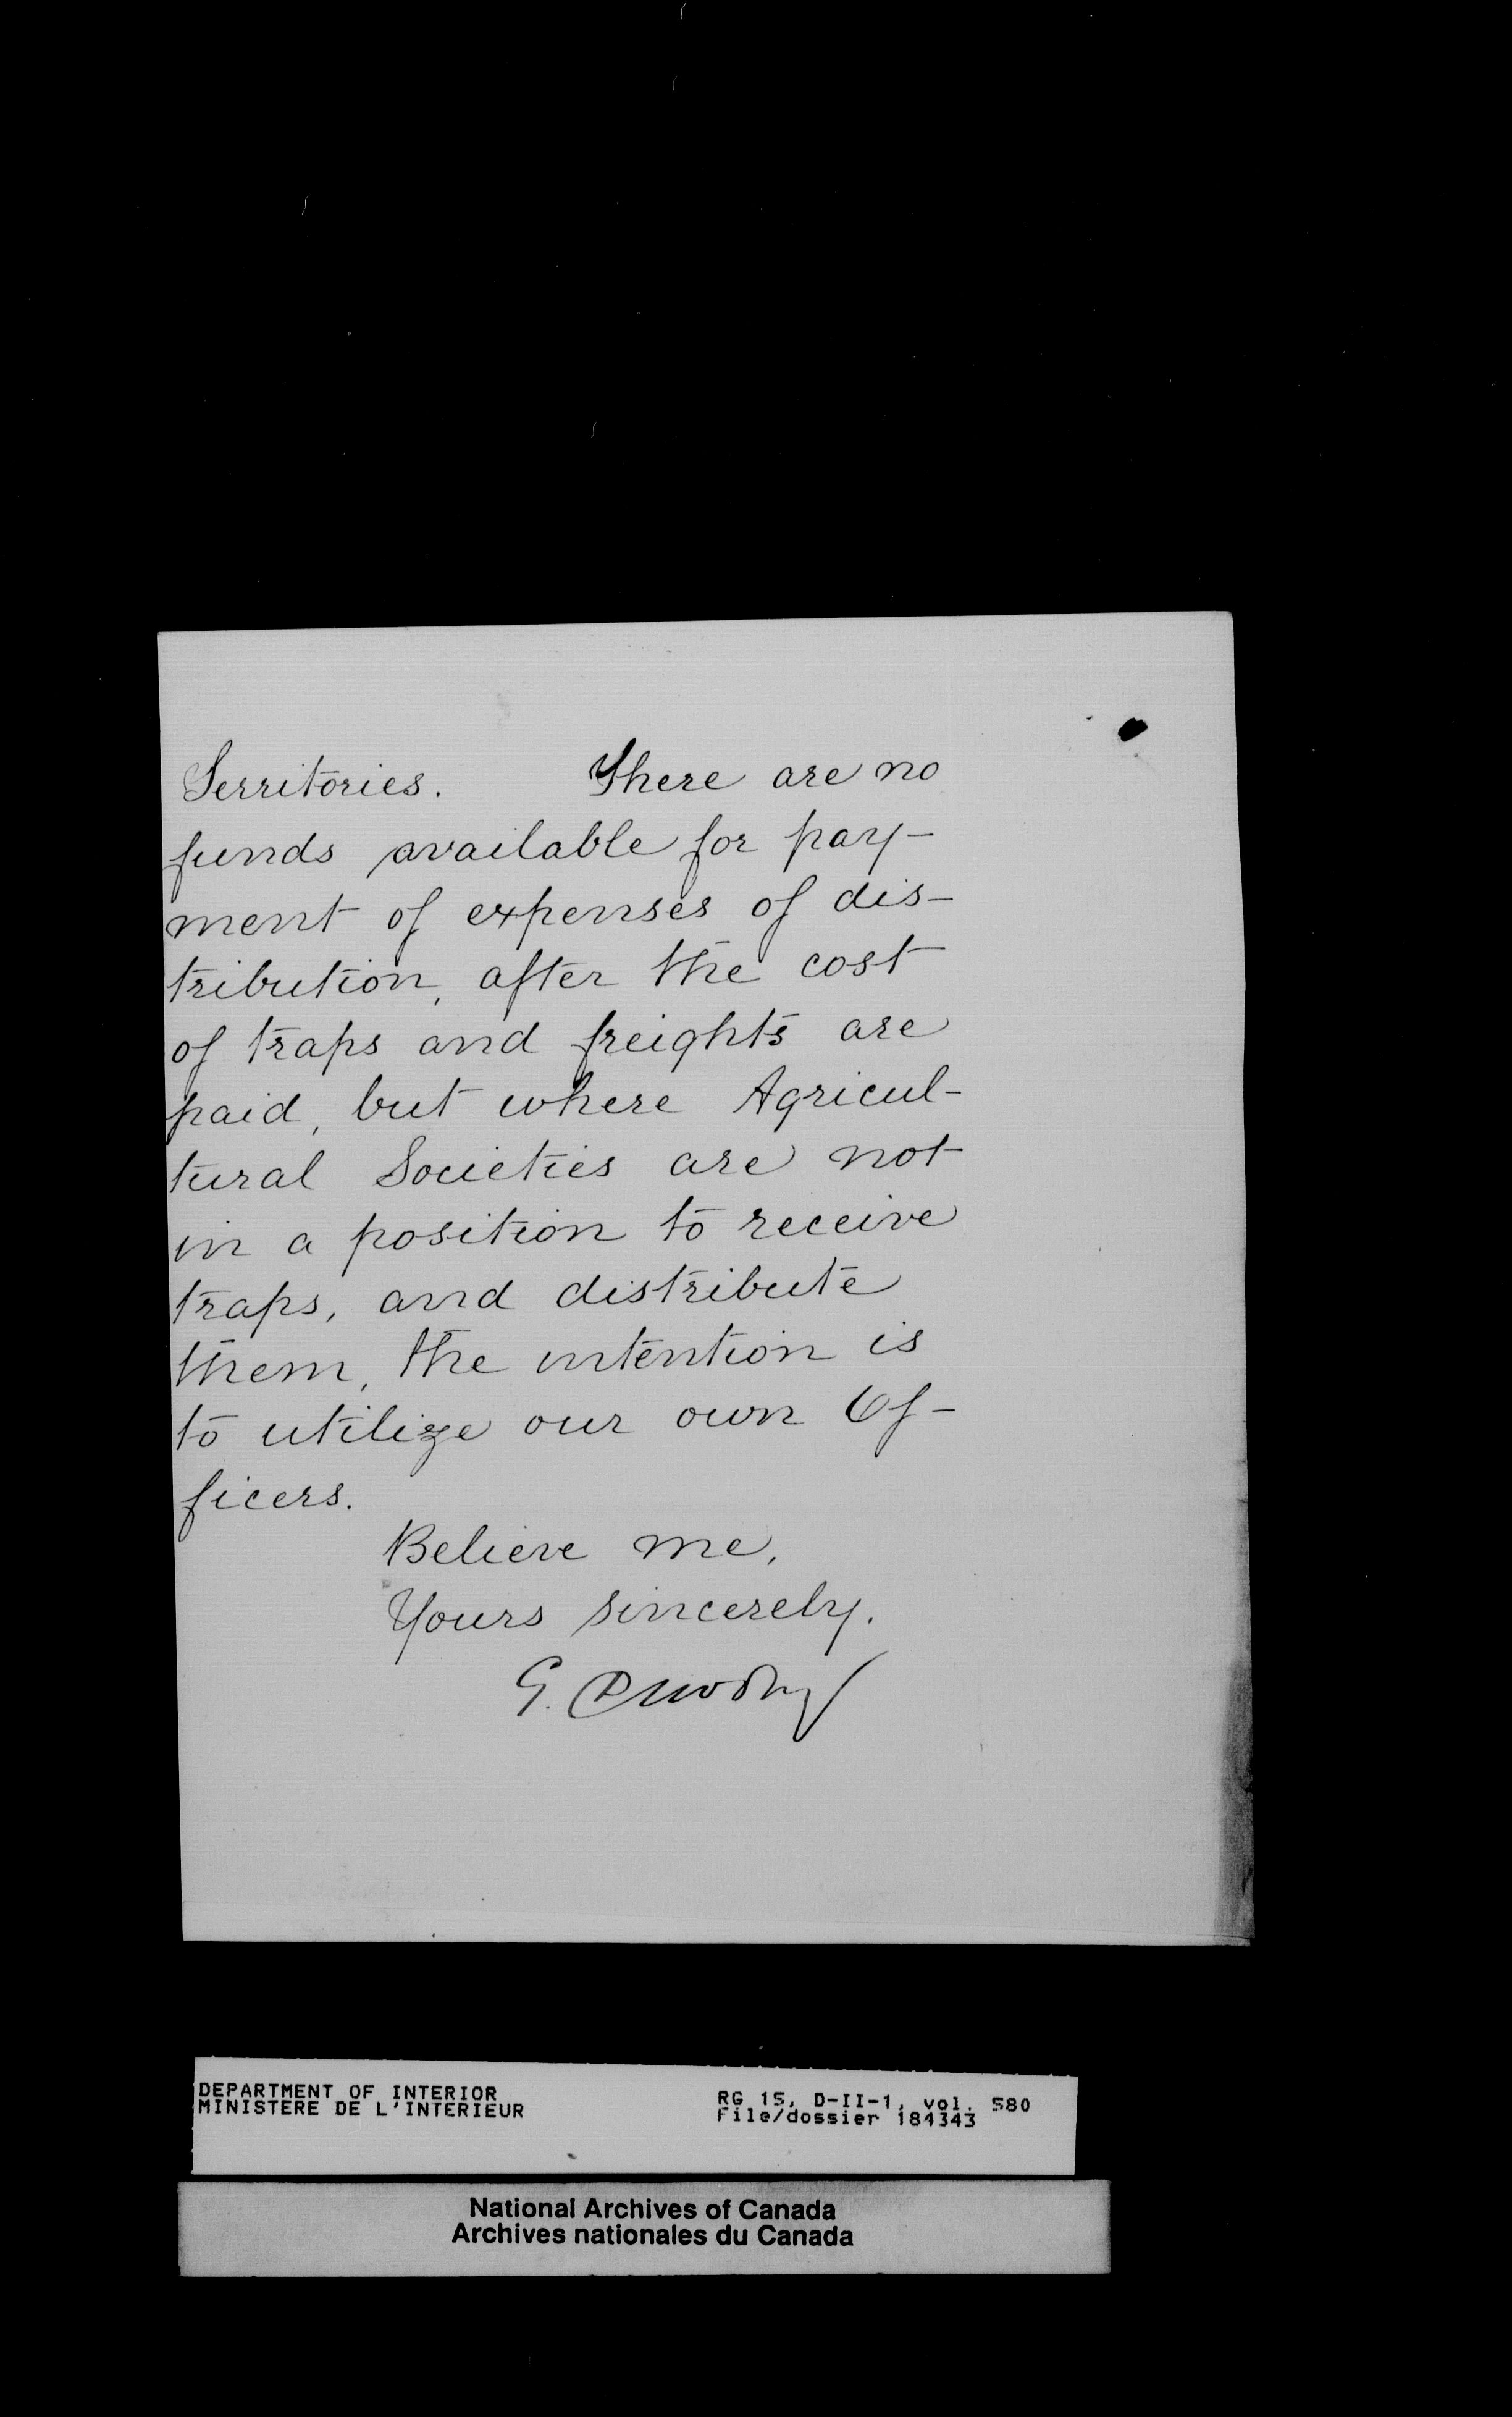 Territories. There are no
funds available for pay-
ment of expenses of dis-
tribution, after the cost
of traps and freights are
paid, but where Agricul-
tural Societies are not
in a position to receive
traps, and distribute
them, the intention is
to utilize our own Of-
ficers.
Believe me,
Yours sincerely.
G.
DEPARTMENT OF INTERIOR
MINISTERE DE L'INTERIEUR
RG 15, D-II-1, vol. 580
File/dossier 184343
National Archives of Canada
Archives nationales du Canada